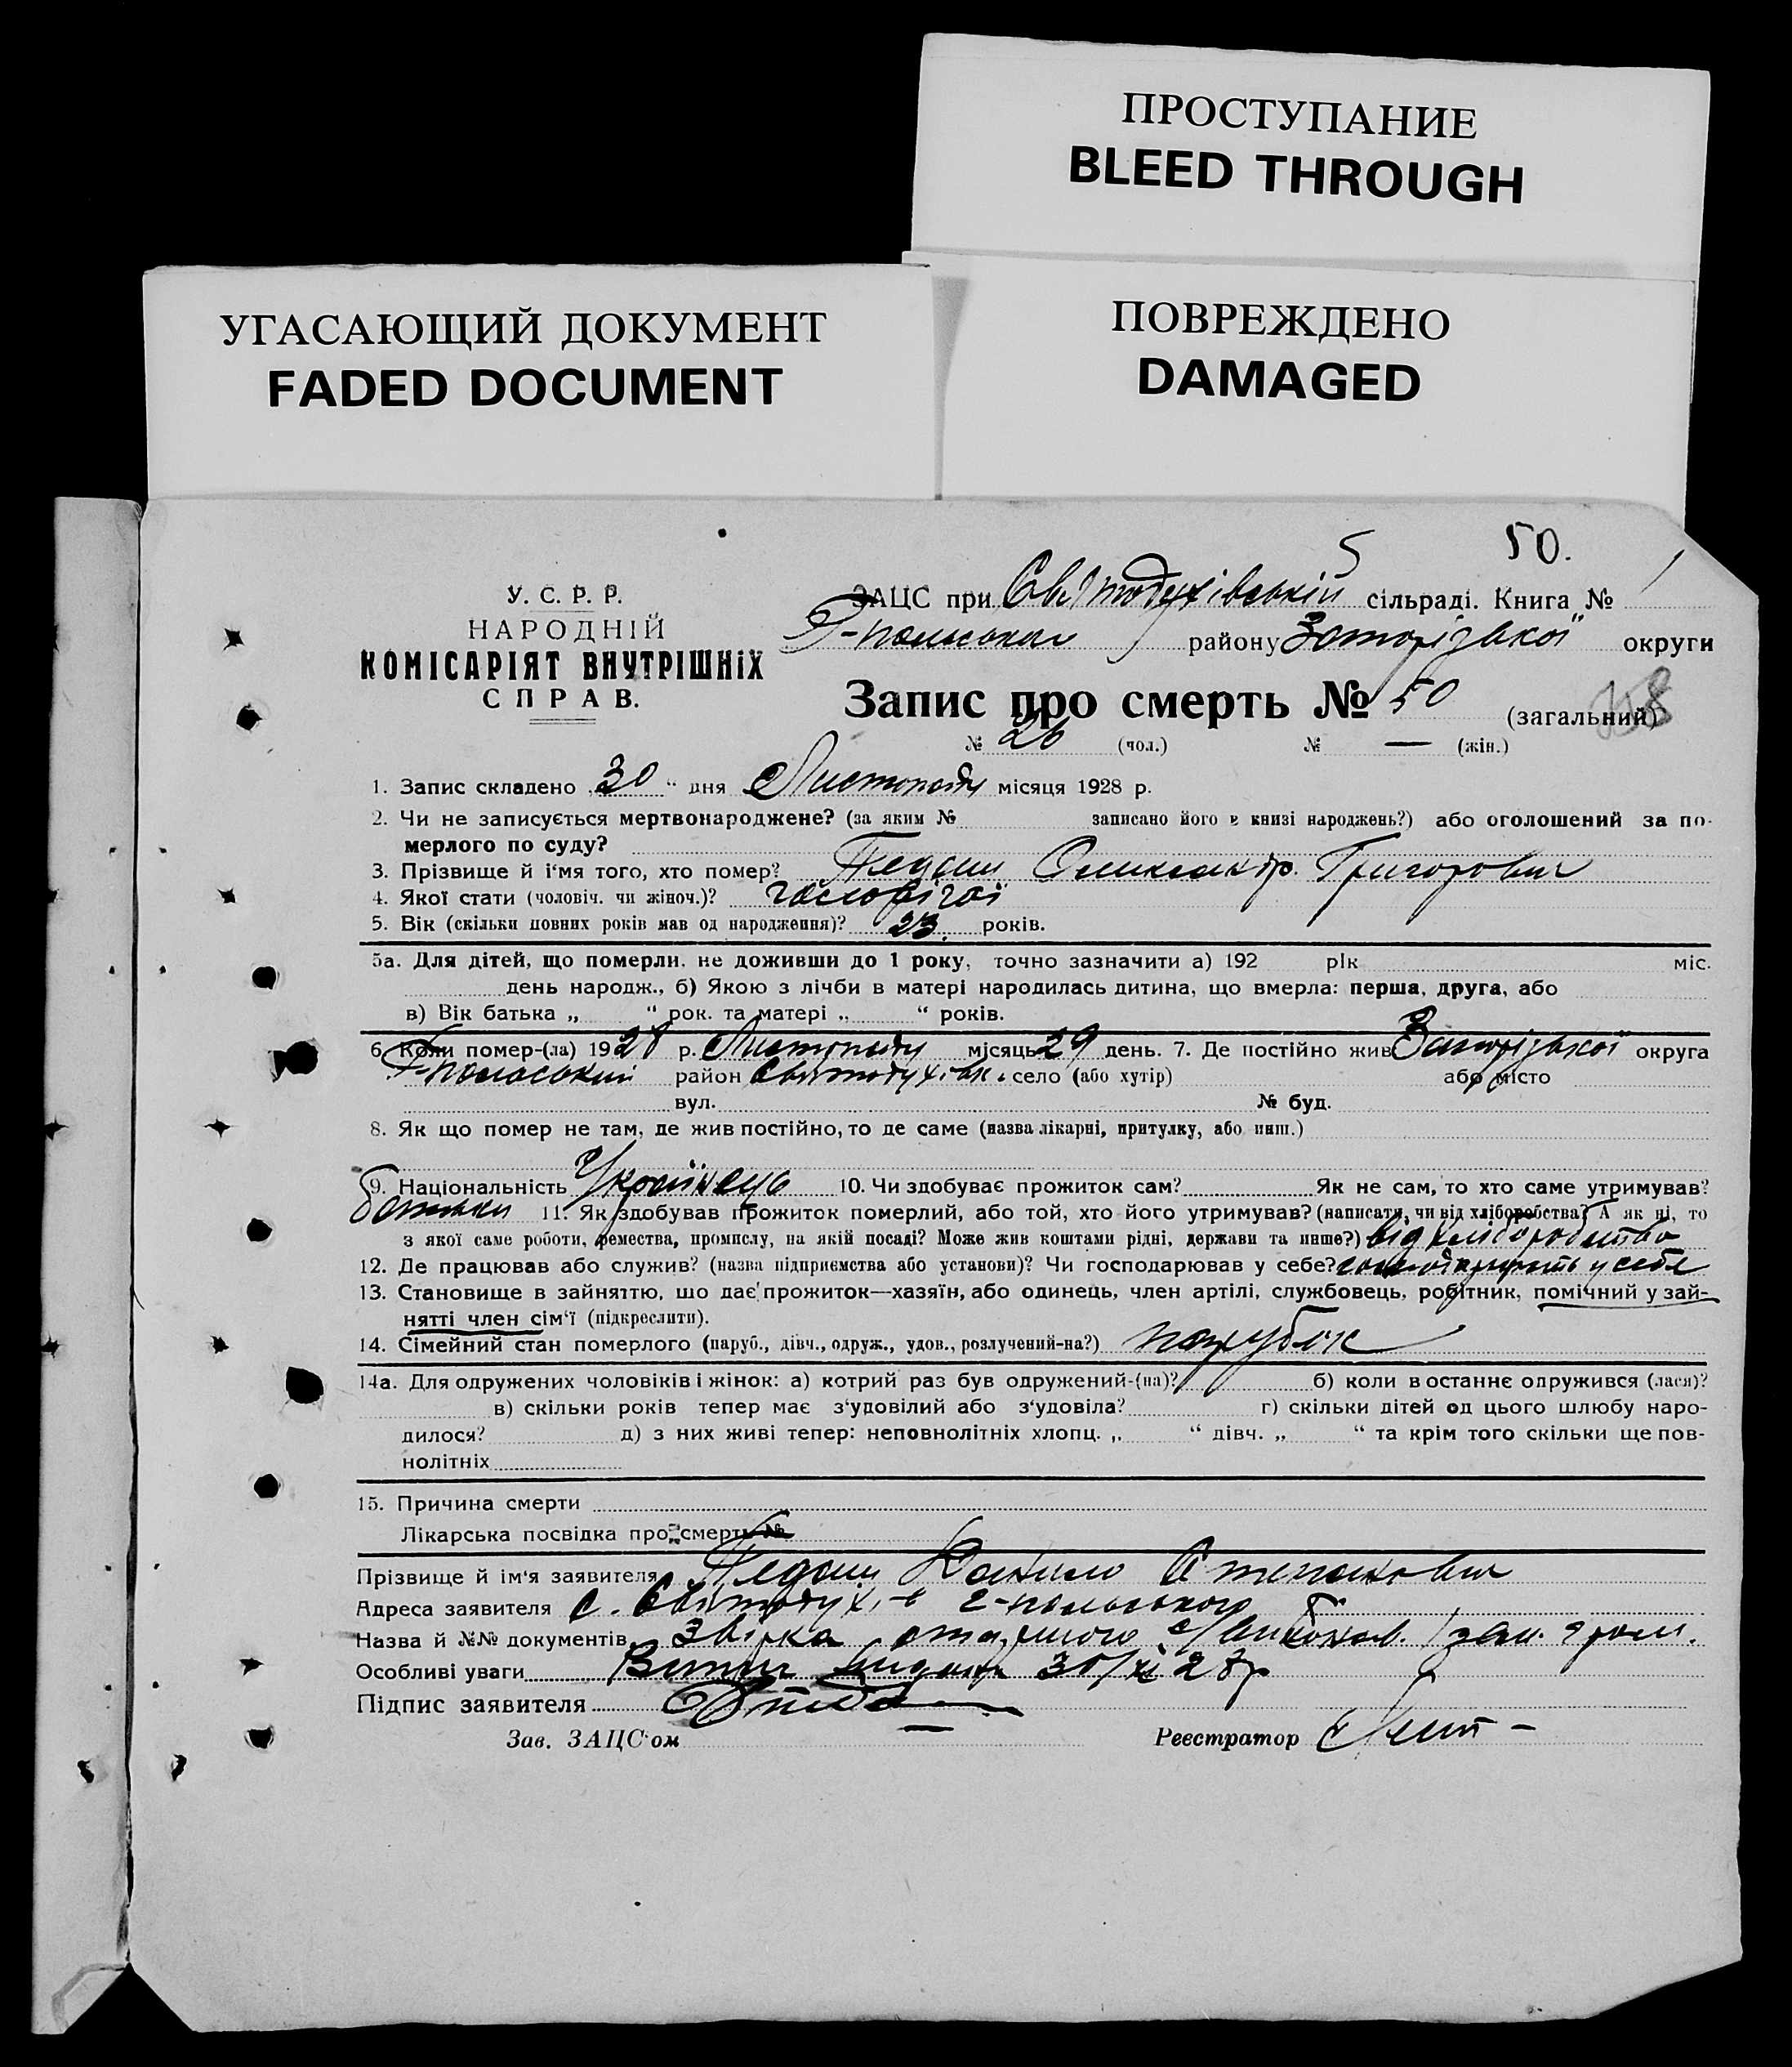 ПРОСТУПАНИЕ
BLEED THROUGH
УГАСАЮЩИЙ ДОКУМЕНТ
FADED DOCUMENT
ПОВРЕЖДЕНО
DAMAGED
50.
5
У. С. Р. Р.
НАРОДНІЙ
КОМІСАРІЯТ ВНУТРІШНІХ
СПРАВ.
ЗАЦС при Святодухівській сільраді. Книга № 1
району Запорізької округи
Запис про смерть № 50 (загальний)
№ 26 (чол.) № — (жін.)
1. Запис складено „30“ дня Листопаду місяця 1928 р.
2. Чи не записується мертвонароджене? (за яким № записано його в книзі народжень?) або оголошений за по-
мерлого по суду?
3. Прізвище й і'мя того, хто помер? Педаш Олександр Григорович
4. Якої стати (чоловіч. чи жіноч.)? чоловічої
5. Вік (скільки повних років мав од народження)? 23. років.
5а. Для дітей, що померли, не доживши до 1 року, точно зазначити а) 192 рік міс.
день народж., б) Якою з лічби в матері народилась дитина, що вмерла: перша, друга, або
в) Вік батька „ “ рок. та матері „ “ років.
6. Коли помер-(ла) 1928 р. Листопаду місяць 29 день. 7. Де постійно жив Запорізької округа
район село (або хутір) або місто
вул. № буд.
8. Як що помер не там, де жив постійно, то де саме (назва лікарні, притулку, або инш.)
9. Національність Українець 10. Чи здобуває прожиток сам? Як не сам, то хто саме утримував?
батьки 11. Як здобував прожиток померлий, або той, хто його утримував? (написати, чи від хліборобства? А як ні, то
з якої саме роботи, ремества, промислу, на якій посаді? Може жив коштами рідні, держави та инше?) від хліборобства
12. Де працював або служив? (назва підприємства або установи)? Чи господарював у себе? у себе
13. Становище в зайняттю, що дає прожиток—хазяїн, або одинець, член артілі, службовець, робітник, помічний у зай-
нятті член сім'ї (підкреслити).
14. Сімейний стан померлого (паруб., дівч., одруж., удов., розлучений-на?) парубок
14а. Для одружених чоловіків і жінок: а) котрий раз був одружений-(на)? б) коли в останнє одружився (лася)?
в) скільки років тепер має з'удовілий або з'удовіла? г) скільки дітей од цього шлюбу наро-
дилося? д) з них живі тепер: неповнолітніх хлопц. „ “ дівч. „ “ та крім того скільки ще пов-
нолітніх
15. Причина смерти
Лікарська посвідка про смерть №
Прізвище й ім'я заявителя Педаш Данило Степанович
Адреса заявителя с.
Назва й №№ документів
Особливі уваги Витяг видан 30/XI 28р
Підпис заявителя
Зав. ЗАЦС'ом — Реєстратор